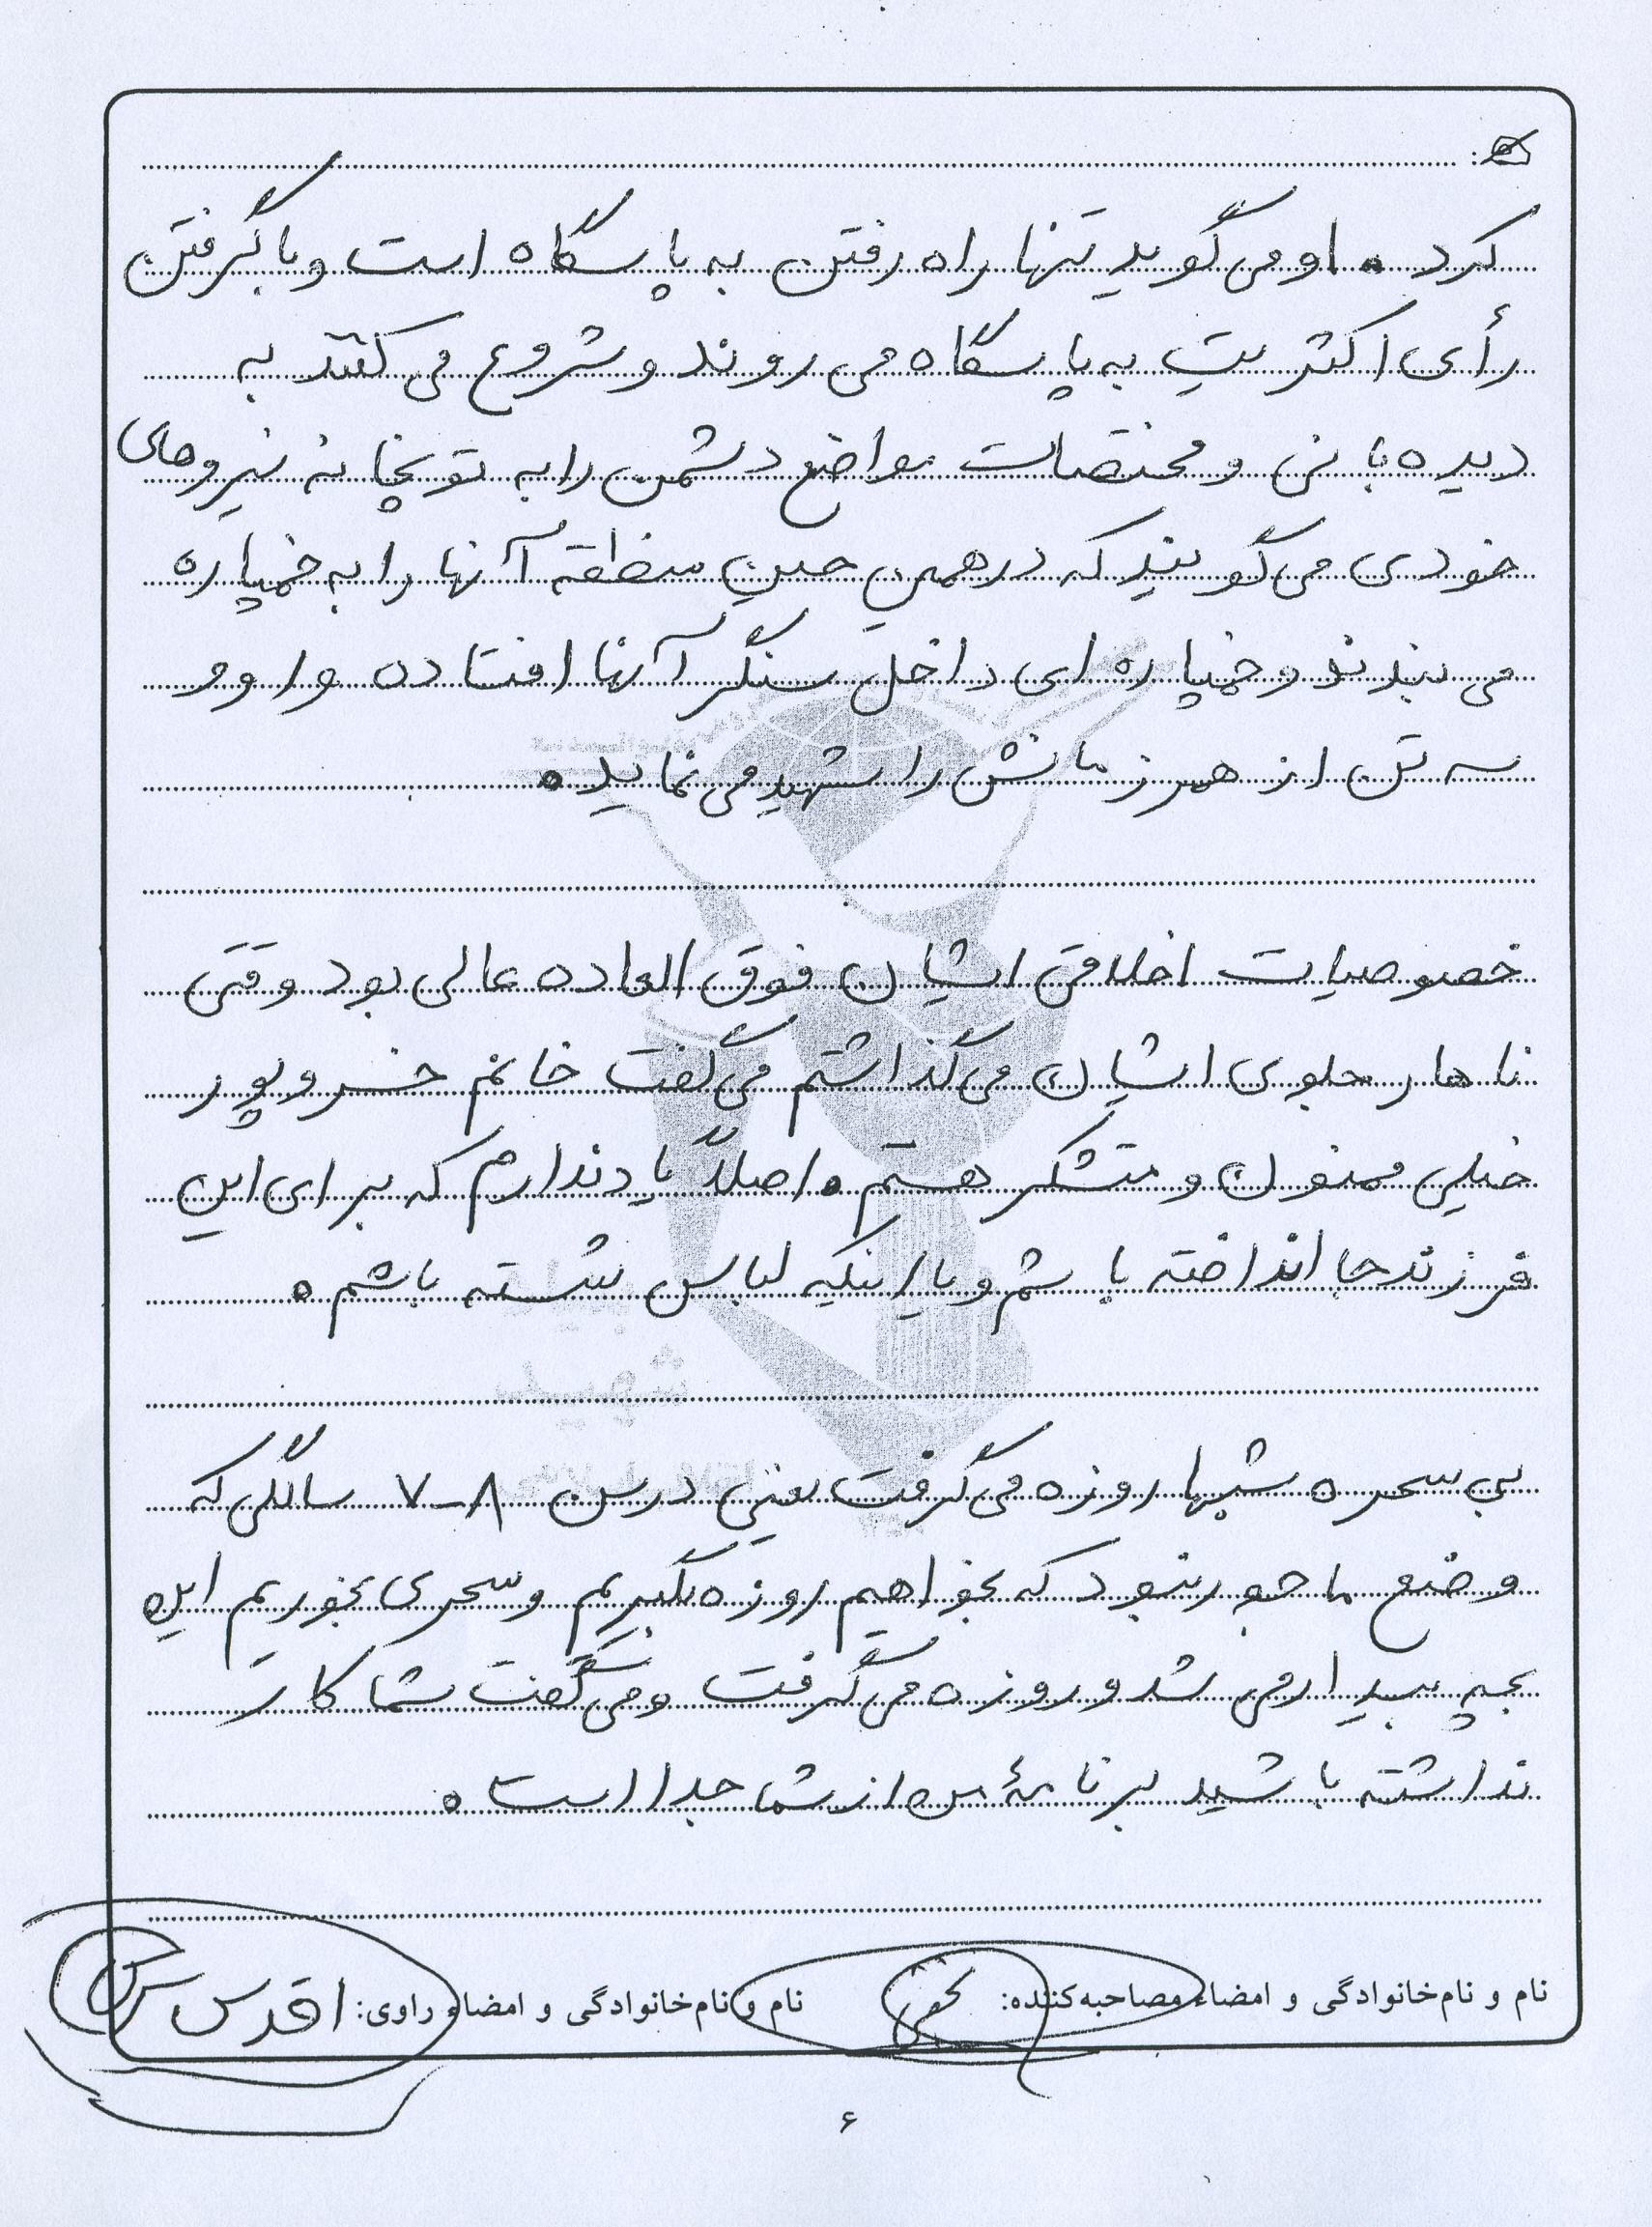 کرد. او می‌گوید تنها راه رفتن به پاسگاه است و با گرفتن
رأی اکثریت به پاسگاه می روند و شروع می کنند به
دیده بانی و مختصات مواضع دشمن را به توپخانه نیروهای
خودی می‌گویند که در همین حین منطقه آنها را به خمپاره
می بندند و خمپاره ای داخل سنگر آنها افتاده و او و
سه تن از همرزمانش را شهید می نماید.
خصوصیات اخلاقی ایشان فوق العاده عالی بود وقتی
ناهار جلوی ایشان می‌گذاشتم می‌گفت خانم خسروپور
خیلی ممنون و متشکر هستم. اصلاً یاد ندارم که برای این
فرزند جا انداخته باشم و یا اینکه لباس شسته باشم.
بی سحره شبها روزه می‌گرفت یعنی در سن ۸-۷ سالگی که
وضع ما جور نبود که بخواهیم روزه بگیریم و سحری بخوریم این
بچه بیدار می شد و روزه می‌گرفت و می‌گفت شما کار
نداشته باشید برنامهٔ من از شما جدا است.
نام و نام‌خانوادگی و امضاء مصاحبه‌کننده: نام و نام‌خانوادگی و امضاء راوی: اقدس
۶